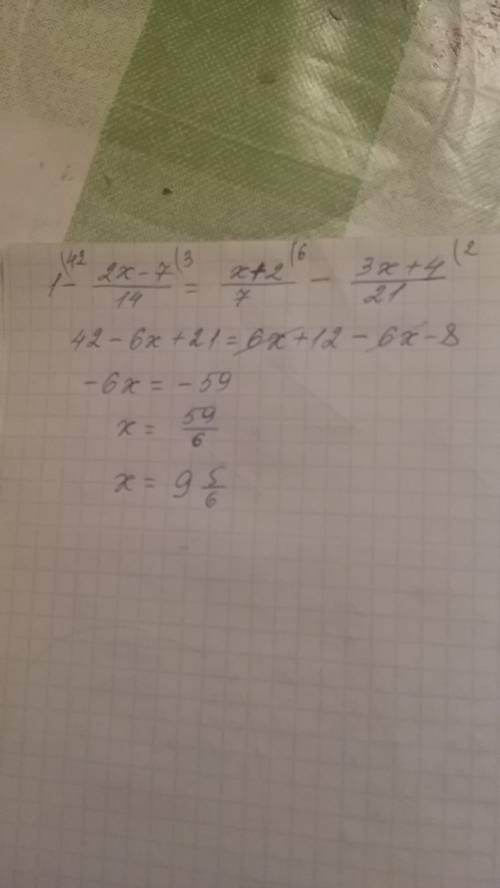 1(42 - (2x-7)/14 (3 = (x+2)/7 (6 - (3x+4)/21 (2
42-6x+21=6x+12-6x-8
-6x=-59
x= 59/6
x= 9 5/6